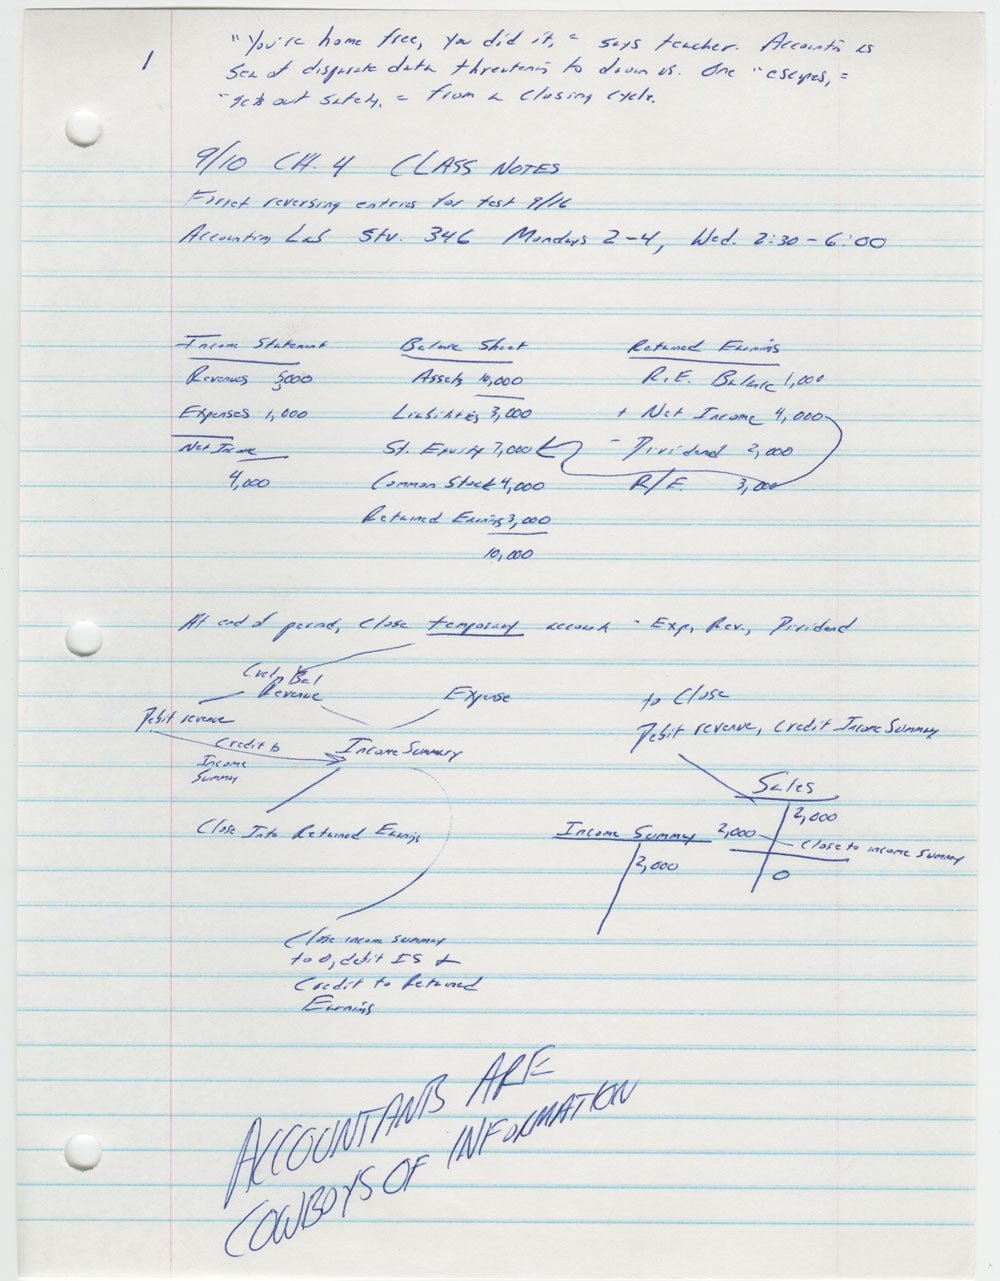 1
"You're home free, you did it," says teacher. Accounting is
sea of disparate data threatening to drown us. One "escapes,"
"gets out safely," from a closing cycle.
9/10 CH. 4 CLASS NOTES
Forget reversing entries for test 9/16
Accounting Lab Stv. 346 Mondays 2-4, Wed. 2:30-6:00
Income Statement Balance Sheet Retained Earnings
Revenues 5000 Assets 10,000 R.E. Balance 1,000
Expenses 1,000 Liabilities 3,000 + Net Income 4,000
Net Income St. Equity 7,000 - Dividend 2,000
4,000 Common Stock 4,000 R/E 3,000
Retained Earnings 3,000
10,000
At end of period, close temporary accounts - Exp, Rev., Dividend
Bal
Revenue Expense to Close
Debit revenue Debit revenue, credit Income Summary
Credit to Income Summary
Income
Summy
Sales
2,000
Close Into Retained Earnings Income Summary 2,000
close to income summary
2,000
0
Close income summary
to 0, debit IS +
Credit to Retained
Earnings
ACCOUNTANTS ARE
COWBOYS OF INFORMATION